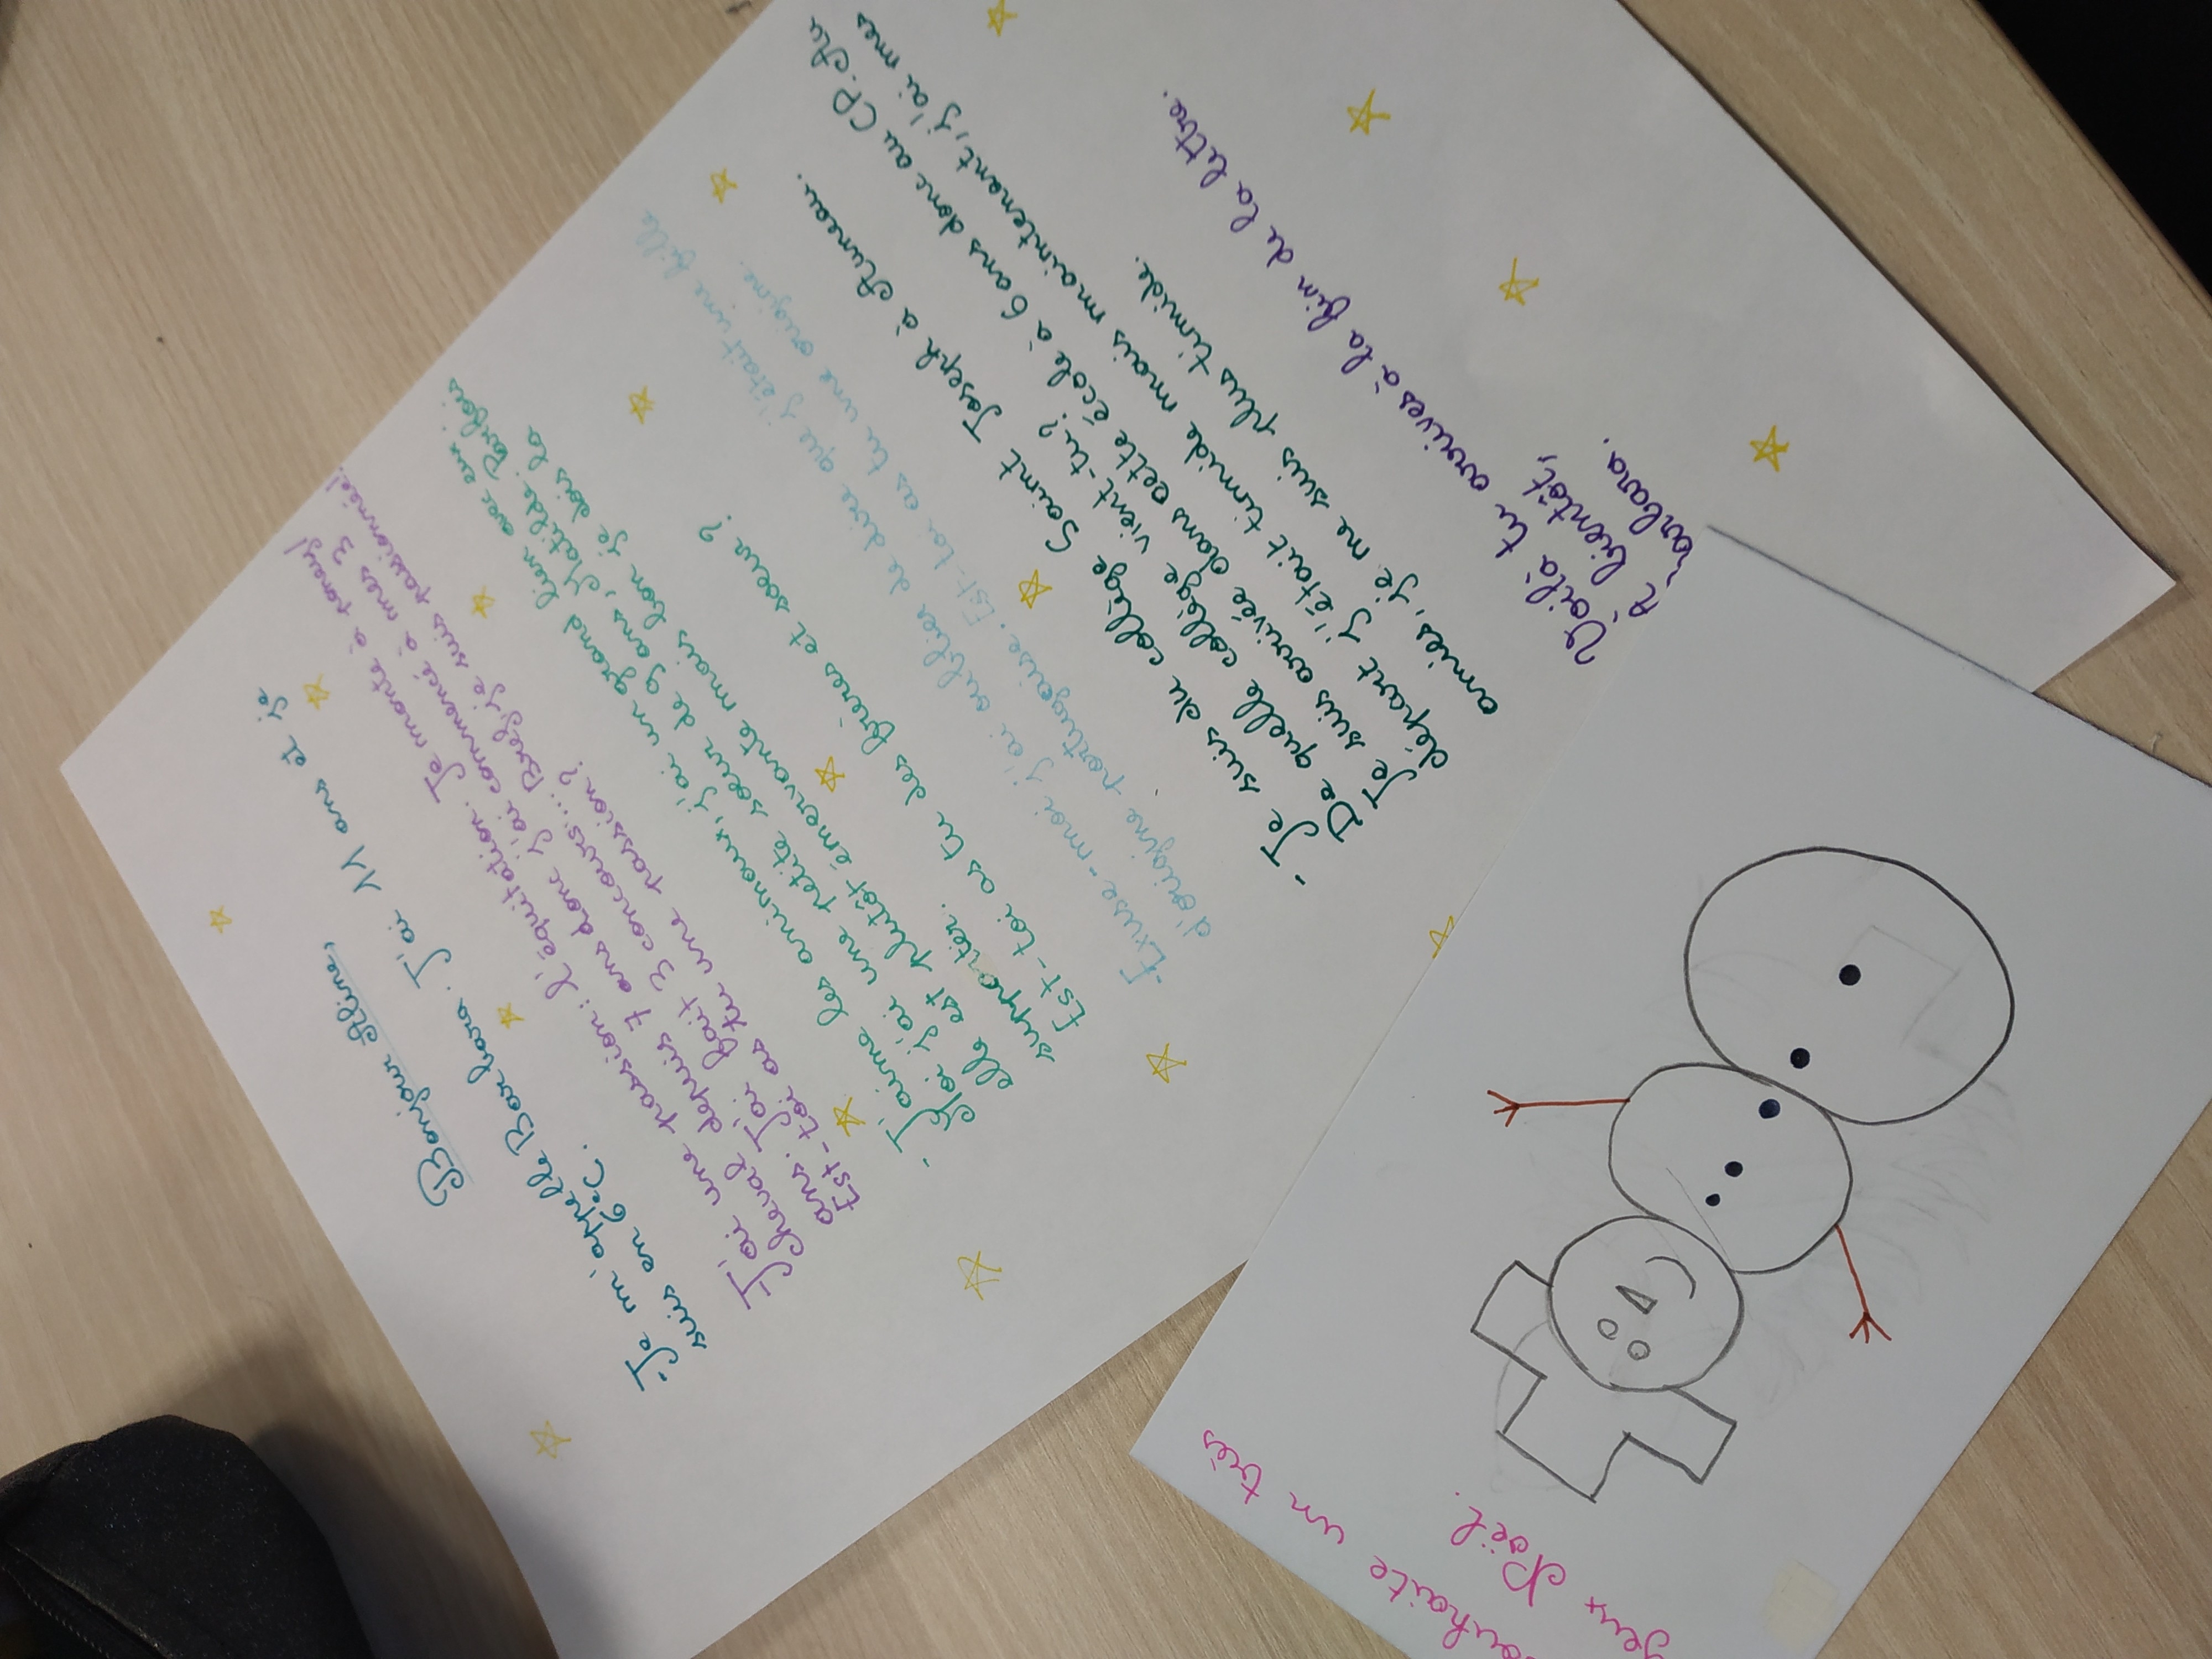 Bonjour Aline,
-Je m'appelle Barbara. J'ai 11 ans et je
suis en 6eC.
-J'ai une passion: L'équitation. Je monte à poney/
cheval depuis 7 ans donc j'ai commencé à mes 3
ans. J'ai fait 3 concours... Bref, je suis passionnée!
Est-toi as tu une passion?
-J'aime les animaux, j'ai un grand lien avec eux.
Moi j'ai une petite soeur de 9 ans, Matilde. Parfois
elle est plutôt énervante mais bon je dois la
supporter.
Est-toi as tu des frères et soeur?
-Exuse-moi j'ai oublier de dire que j'était une fille
d'origine portugaise. Est-toi as tu une origine.
-Je suis du collège Saint Joseph à Auneau.
De quelle collège vient-tu?
Je suis arrivée dans cette école à 6 ans donc au CP. Au
départ j'était timide mais maintenant, j'ai mes
amies, je me suis plus timide.
Voilà tu arrives à la fin de la lettre.
A bientôt,
Barbara.
souhaite un très
yeux Noël.